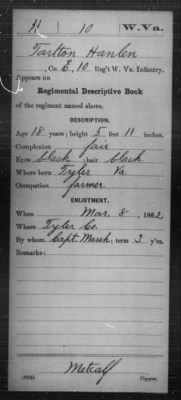 H 10 W.Va.
Tarlton Hanlen
, Co. E, 10 Reg't W. Va. Infantry.
Appears on
Regimental Descriptive Book
of the regiment named above.
DESCRIPTION.
Age 18 years; height 5 feet 11 inches.
Complexion fair
Eyes black ; hair black
Where born Tyler Va.
Occupation farmer
ENLISTMENT.
When Mar. 8 , 1862.
Where Tyler Co.
By whom Capt. Marsh ; term 3 y'rs.
Remarks:
Metcalf
Copyist.